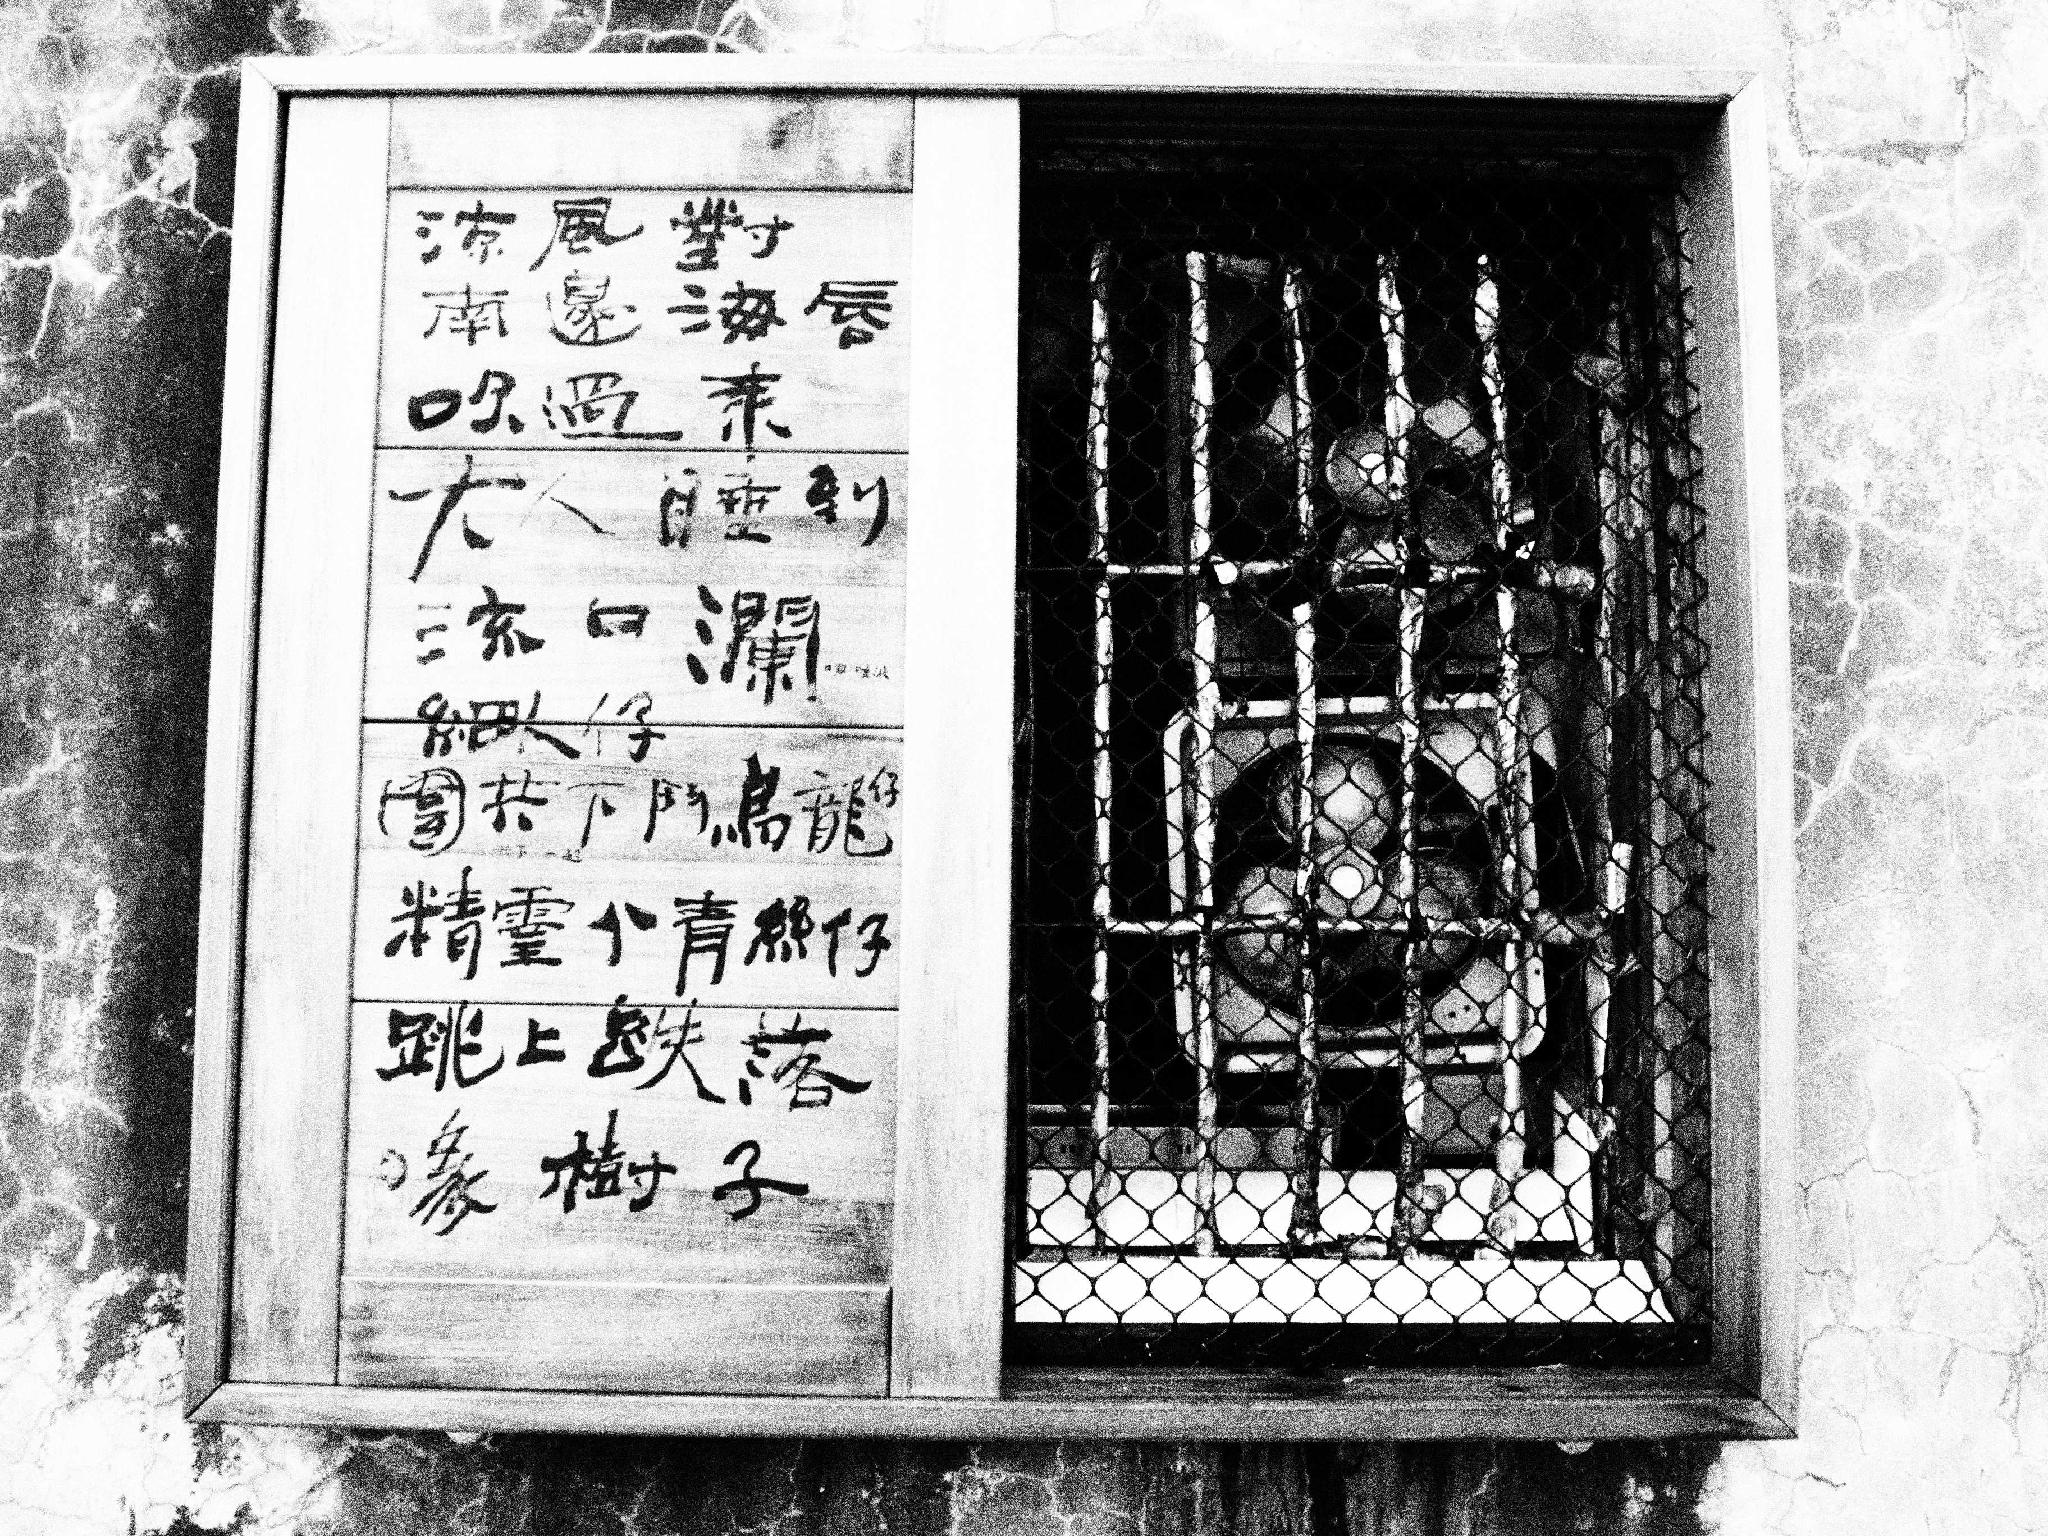 涼風對
南邊海唇
吹過來
大人睡到
流口瀾
細人仔
圍共下鬥烏龍仔
精靈个青絲仔
跳上跌落
喙樹子